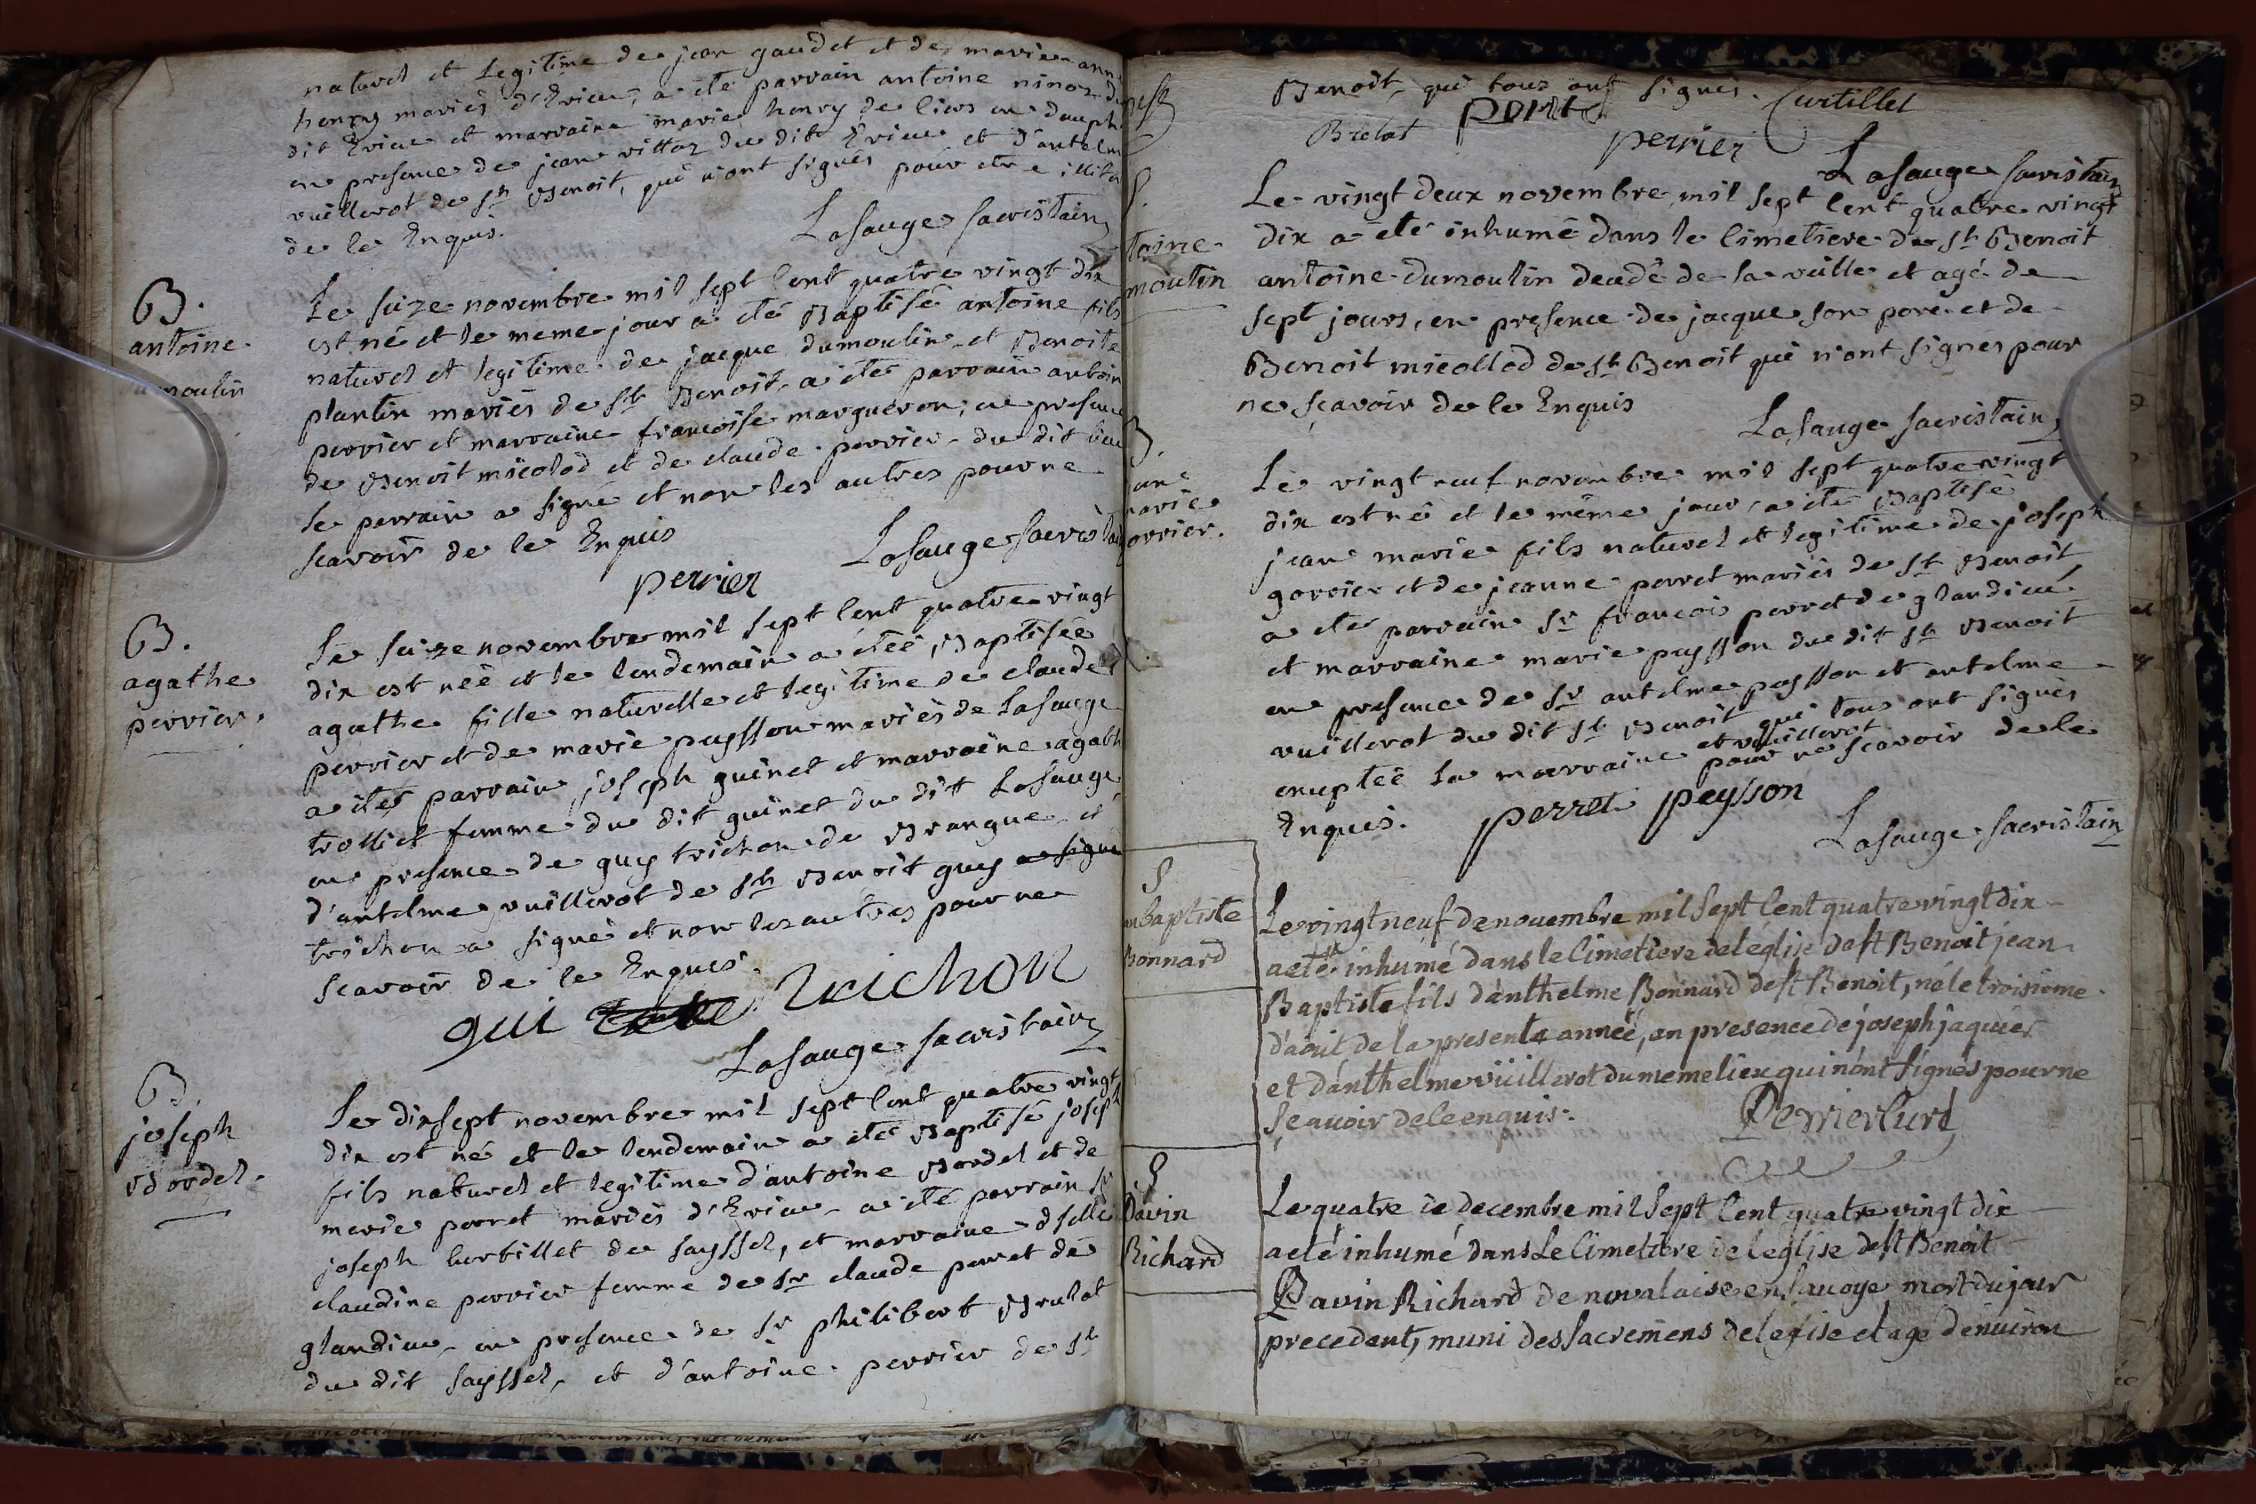 naturel et legitime de jean gaudet et de marie ann
henry mariés d'Evieu, a eté parrain antoine ninoz du
dit Evieu et marraine marie henry de lieu en dauph
en presence de jean villoz du dit Evieu et d'antelm
vuillerot de st Benoit, qui n'ont signés pour etre illite
de le Enquis.
Lasauge sacristain
B.
antoine
dumoulin
Le seize novembre mil sept cent quatre vingt dix
est né et le meme jour a eté Baptisé antoine fils
naturel et legitime de jacque dumoulin et Benoite
plantin mariés de st Benoit, a eté parrain antoin
perrier et marraine francoise margueron, en presence
de Benoit micolod et de claude perrier du dit lieu
le parrain a signé et non les autres pour ne
scavoir de le Enquis
perrier
Lasauge sacristain
B.
agathe
perrier.
Le seize novembre mil sept cent quatre vingt
dix est néé et le lendemain a étéé Baptiséé
agathe fille naturelle et legitime de claude
perrier et de marie peysson mariés de Lasauge
a eté parrain joseph guinet et marraine agath
trolliet femme du dit guinet du dit Lasauge
en presence de guy trichon de Brangue et
d'antelme vuillerot de st Benoit guy a signé
trichon a signé et non les autres pour ne
scavoir de le Enquis.
gui trichon
Lasauge sacristain
B.
joseph
Bordel.
Le dixsept novembre mil sept cent quatre vingt
dix est né et le lendemain a eté Baptisé joseph
fils naturel et legitime d'antoine Bordel et de
marie perret mariés d'Evieu a eté parrain sr
joseph curtillet de seyssel, et marraine dselle
claudine perrier femme de sr claude perret de
glandieu en presence de sr philibert Brulat
du dit seyssel, et d'antoine perrier de st
Benoit, qui tous ont signés.
Curtillet
Brulat
perret
perrier
Lasauge sacristain
S.
toine
moulin
Le vingt deux novembre mil sept cent quatre vingt
dix a eté inhumé dans le cimetiere de st Benoit
antoine dumoulin decedé de la veille et agé de
sept jours, en presence de jacque son pere et de
Benoit micollod de st Benoit qui n'ont signés pour
ne sçavoir de le Enquis
Lasauge sacristain
B.
jean
marie
gorrier.
Le vingt neuf novembre mil sept quatre vingt
dix est né et le même jour a eté Baptisé
jean marie fils naturel et legitime de joseph
gorrier et de jeanne perret mariés de st Benoit
a eté parrain sr francois perret de glandieu
et marraine marie peysson du dit st Benoit
en presence de sr antelme peysson et antelme
vuillerot du dit st Benoit qui tous ont signés
exceptéé la marraine et vuillerot pour ne scavoir de le
Enquis.
perret peysson
Lasauge sacristain
S
an baptiste
Bonnard
Le vingt neuf de novembre mil sept cent quatre vingt dix
a eté inhumé dans le cimetiere de l'église de st Benoit jean
Baptiste fils d'anthelme Bonnard de st Benoit, né le troisieme
d'aout de la presente anneé, en presence de joseph jaquier
et d'anthelme vüillerot du meme lieu qui n'ont signés pour ne
sçavoir de le enquis.
Perrier curé
S
Davin
Richard
Le quatre de decembre mil sept cent quatre vingt dix
a eté inhumé dans le cimetiere de l'eglise de st Benoit
Davin Richard de novalaise en savoye mort du jour
precedent, muni des sacremens de l'eglise et agé d'environ